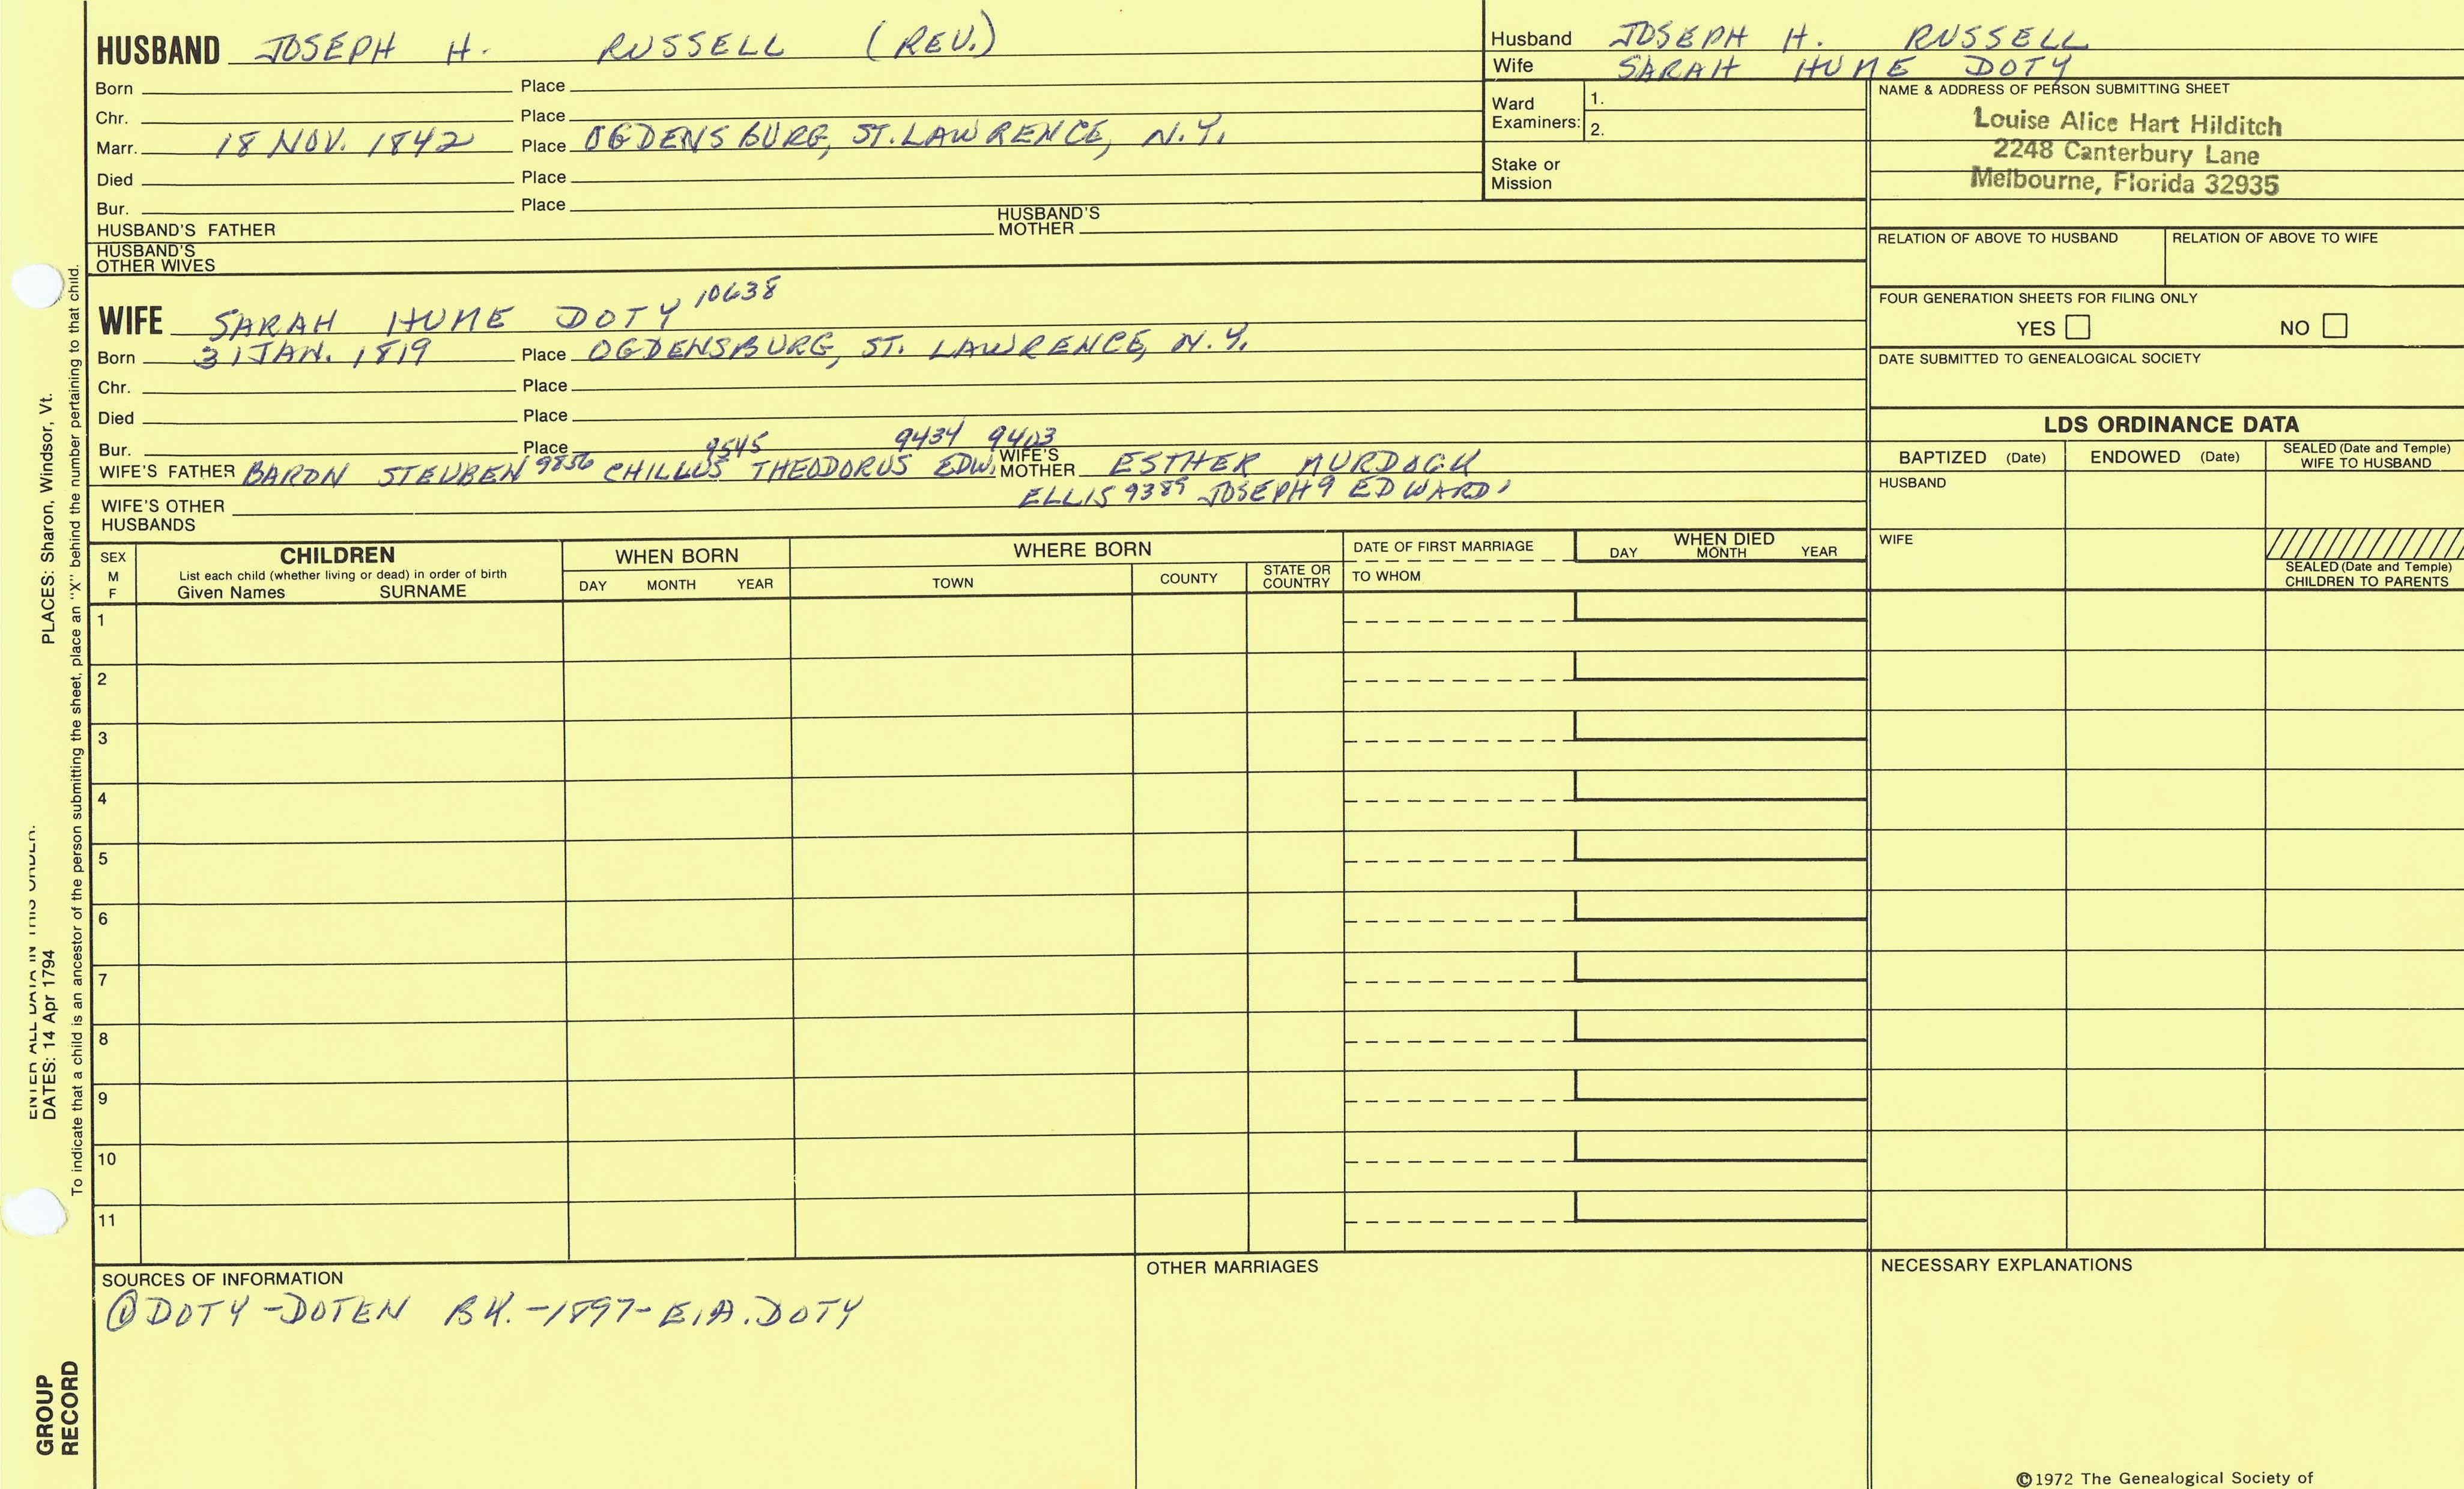 HUSBAND JOSEPH H. RUSSELL (REV.)
Born Place
Chr. Place
Marr. 18 NOV. 1842 Place OGDENSBURG, ST. LAWRENCE, N.Y.
Died Place
Bur. Place
HUSBAND'S FATHER HUSBAND'S MOTHER
HUSBAND'S OTHER WIVES
Husband JOSEPH H. RUSSELL
Wife SARAH HUME DOTY
Ward Examiners: 1.
2.
Stake or Mission
NAME & ADDRESS OF PERSON SUBMITTING SHEET
Louise Alice Hart Hilditch
2248 Canterbury Lane
Melbourne, Florida 32935
RELATION OF ABOVE TO HUSBAND RELATION OF ABOVE TO WIFE
FOUR GENERATION SHEETS FOR FILING ONLY
YES NO
DATE SUBMITTED TO GENEALOGICAL SOCIETY
WIFE SARAH HUME DOTY 10638
Born 31 JAN. 1819 Place OGDENSBURG, ST. LAWRENCE, N.Y.
Chr. Place
Died Place
Bur. Place 9545 9434 9403
WIFE'S FATHER BARON STEUBEN 9856 CHILLUS THEODORUS EDW. WIFE'S MOTHER ESTHER MURDOCK
ELLIS 9389 JOSEPH 9 EDWARD 1
WIFE'S OTHER HUSBANDS
LDS ORDINANCE DATA
BAPTIZED (Date) ENDOWED (Date) SEALED (Date and Temple) WIFE TO HUSBAND
HUSBAND
WIFE
SEALED (Date and Temple) CHILDREN TO PARENTS
SEX M F
CHILDREN
List each child (whether living or dead) in order of birth
Given Names SURNAME
WHEN BORN
DAY MONTH YEAR
WHERE BORN
TOWN COUNTY STATE OR COUNTRY
DATE OF FIRST MARRIAGE
TO WHOM
WHEN DIED
DAY MONTH YEAR
1
2
3
4
5
6
7
8
9
10
11
SOURCES OF INFORMATION
① DOTY-DOTEN BK.-1897-E.A. DOTY
OTHER MARRIAGES
NECESSARY EXPLANATIONS
©1972 The Genealogical Society of
ENTER ALL DATA IN THIS ORDER.
DATES: 14 Apr 1794 PLACES: Sharon, Windsor, Vt.
To indicate that a child is an ancestor of the person submitting the sheet, place an "X" behind the number pertaining to that child.
GROUP
RECORD